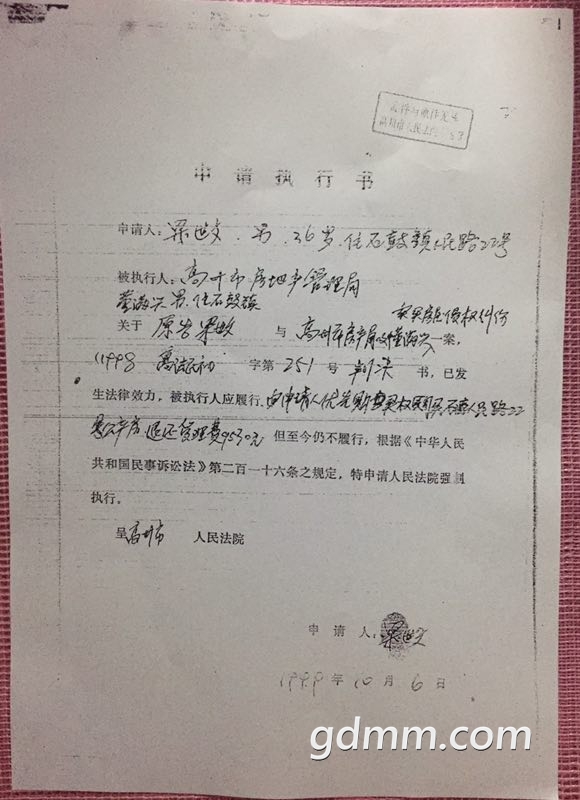 申请执行书
申请人：梁 男．36岁．住石鼓镇人民路22号
被执行人：高州市房地产管理局
住石鼓镇
买卖房屋侵权纠纷
关于 原告梁 与 高州市房产局 一案，
(1998 高法民初 字第 251 号 判决 书，已发
生法律效力，被执行人应履行．由申请人优先购买 石鼓人民路22
号公产房 退还管理费9530元 但至今仍不履行，根据《中华人民
共和国民事诉讼法》第二百一十六条之规定，特申请人民法院强制
执行。
呈高州市 人民法院
申请人：梁
1999年10月6日
gdmm.com